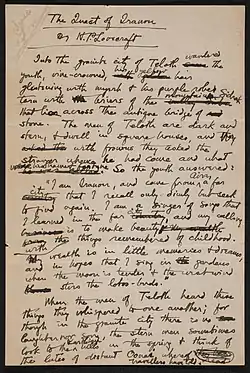 The Quest of Iranon
By H. P. Lovecraft
Into the granite city of Teloth wandered the
youth, vine-crowned, his yellow hair
glistening with myrrh & his purple robe
torn with briers of the
that lies across the antique bridge of
stone. The men of Teloth are dark and
stern, & dwell in square houses, and
with frowns they asked the
stranger whence he had come and what
So the youth answered:
"I am Iranon, and come from Aira, a far
city that I recall only dimly but seek
to find again. I am a singer of songs that
I learned in the far city, and my calling
is to make beauty
with the things remembered of childhood.
My wealth is in little memories & dreams
and in hopes that I sing in gardens
when the moon is tender & the west wind
stirs the lotos-buds."
When the men of Teloth heard these
things they whispered to one another; for
though in the granite city there is no
laughter or song, the stern men sometimes
look to the Karthian hills in the spring & think of
the lutes of distant Oonai whereof
travellers have told.